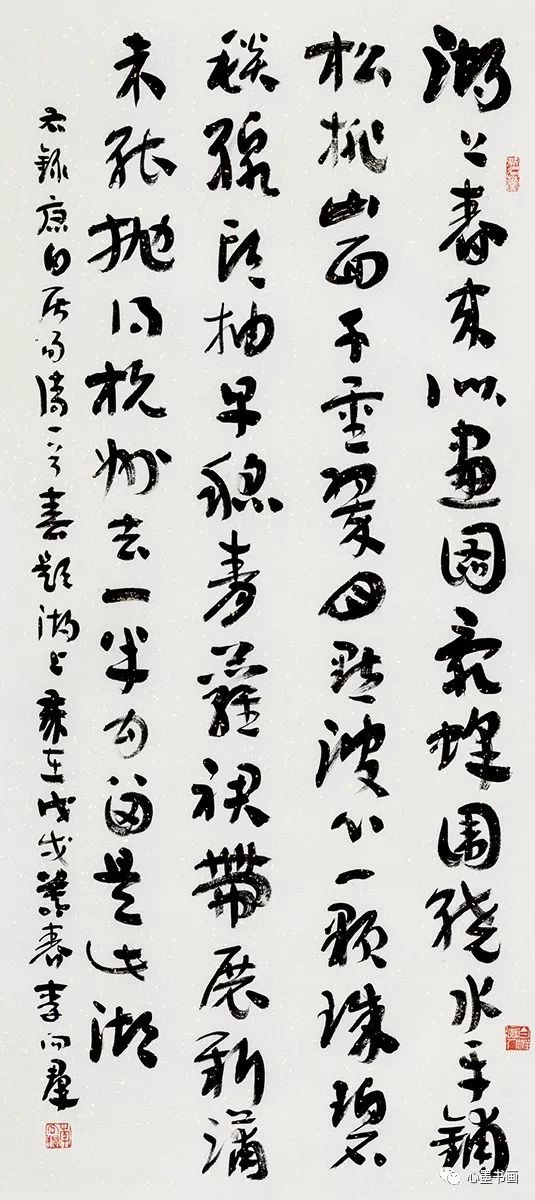 湖上春來似畫圖亂峰圍繞水平鋪
松排山面千重翠月點波心一顆珠碧
毯線頭抽早稻青羅裙帶展新蒲
未能拋得杭州去一半勾留是此湖
右錄唐白居易詩一首春題湖上歲在戊戌春李向群
心墨书画